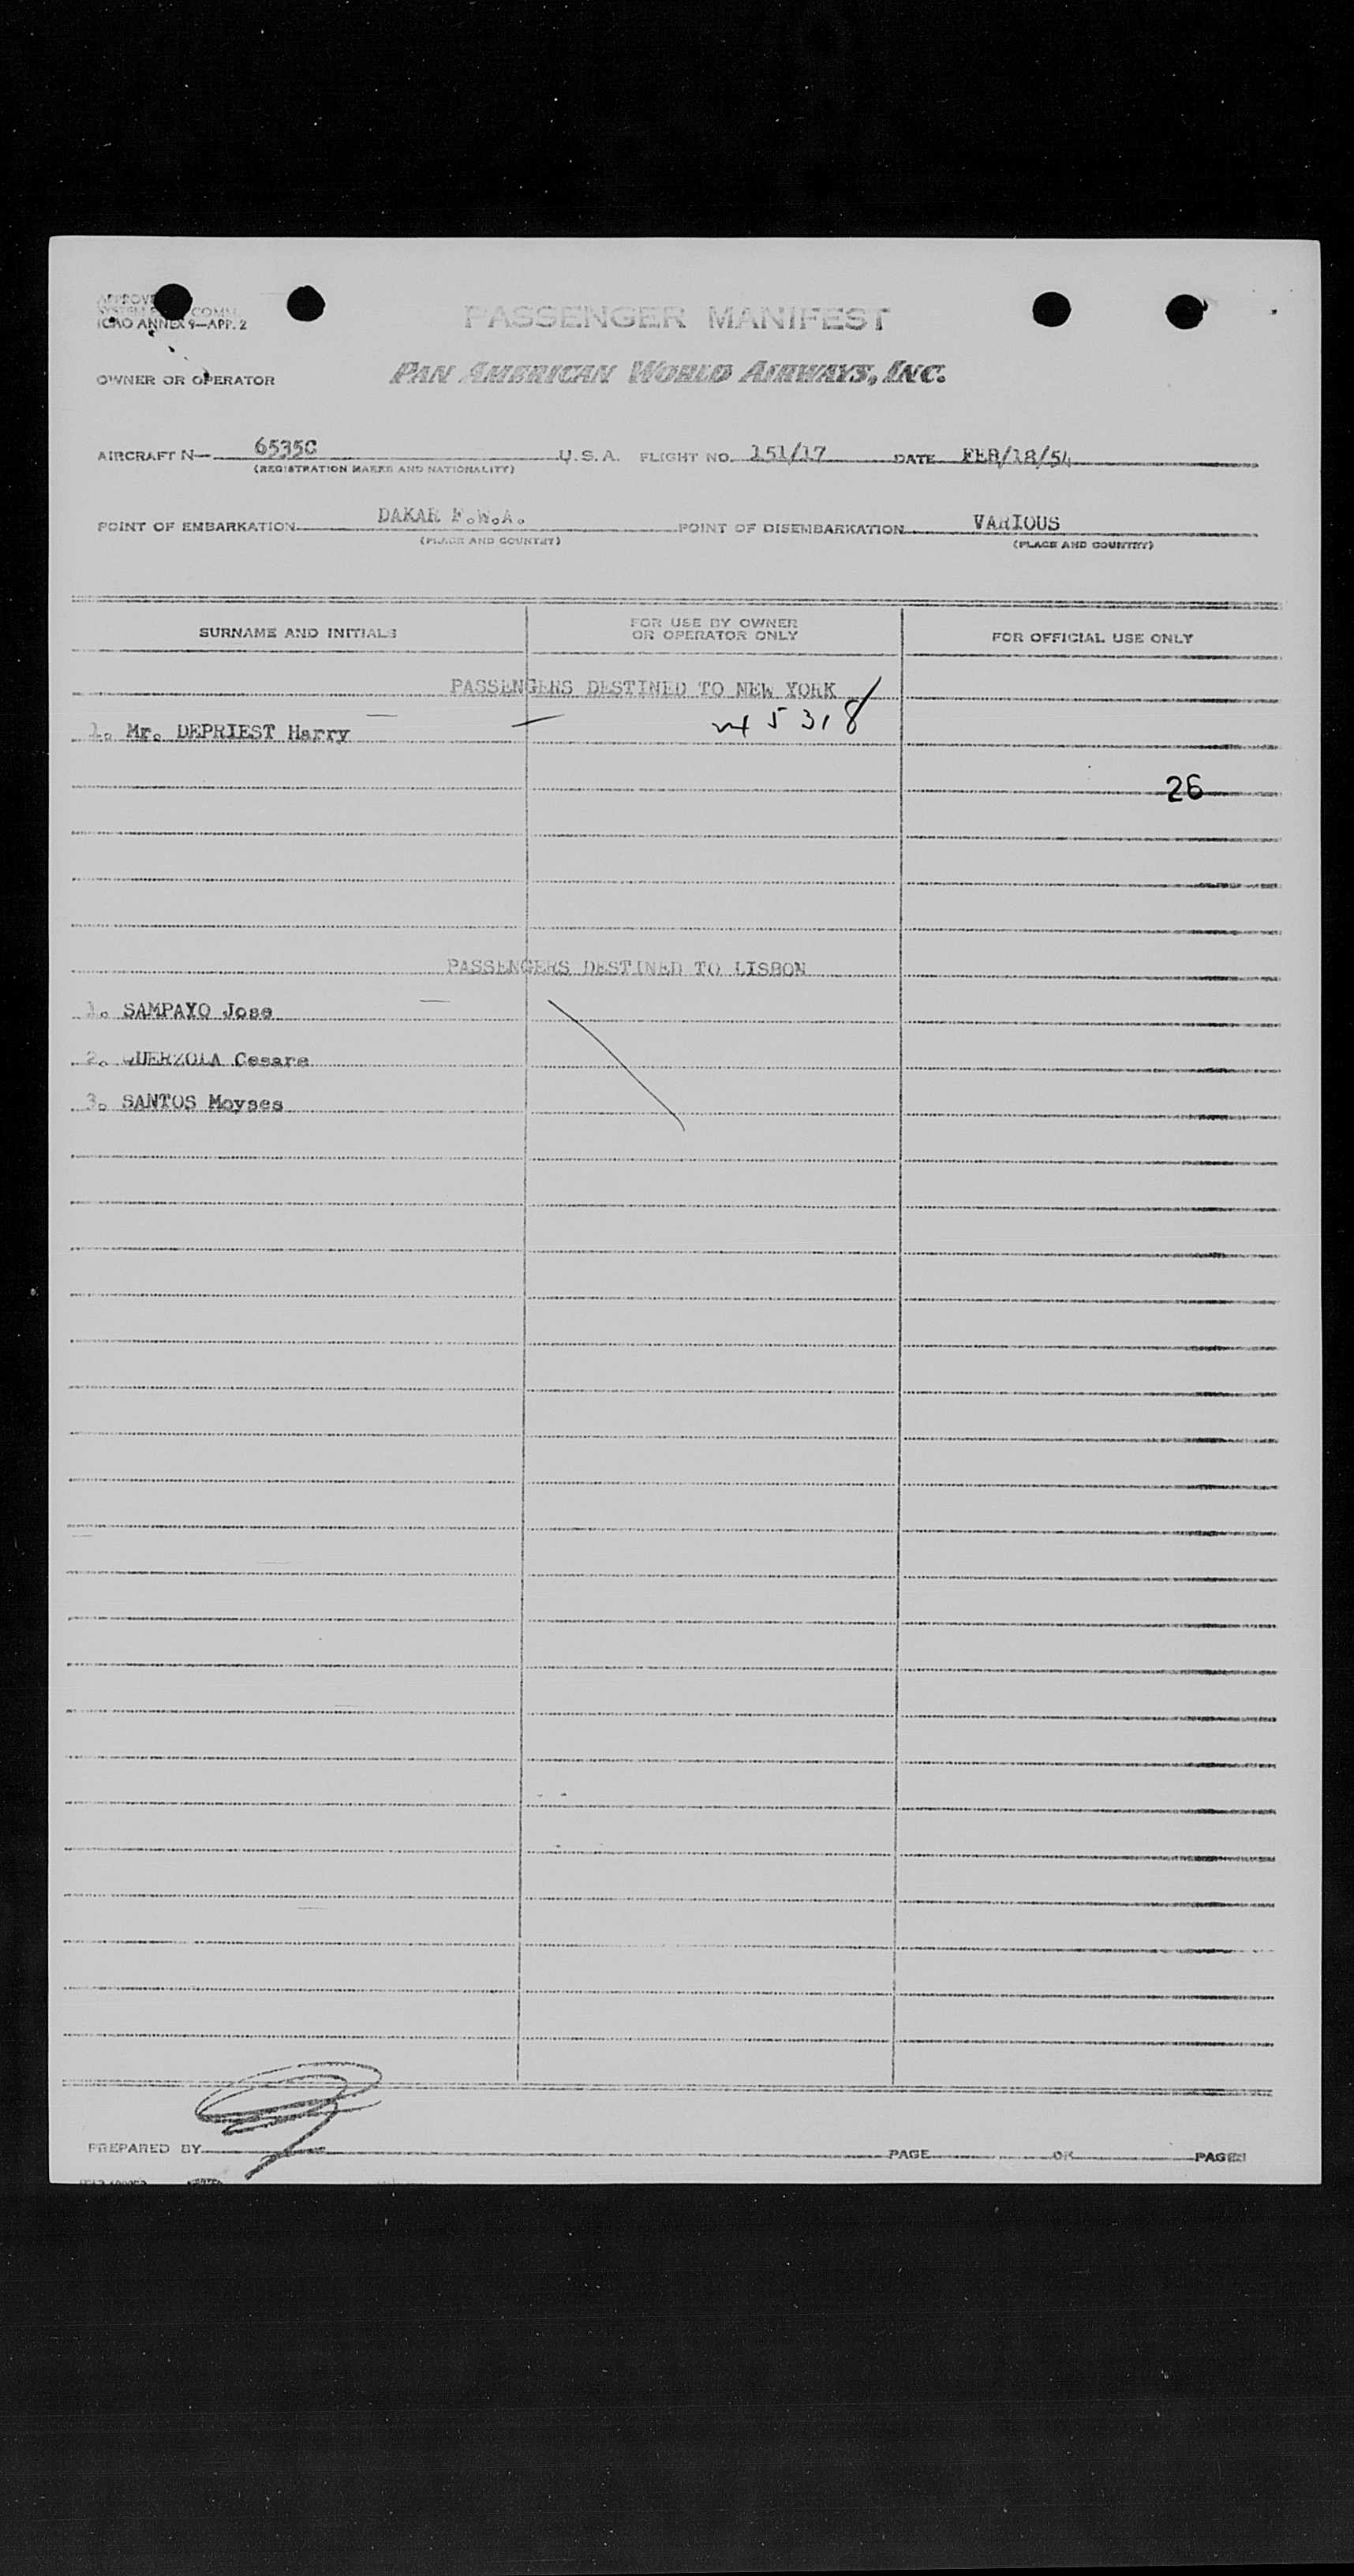 APPROVE
SYSTEM COMM.
ICAO ANNEX 9—APP. 2
PASSENGER MANIFEST
OWNER OR OPERATOR PAN AMERICAN WORLD AIRWAYS, INC.
AIRCRAFT N— 6535C U.S.A. FLIGHT NO. 151/17 DATE FEB/18/54
(REGISTRATION MARKS AND NATIONALITY)
POINT OF EMBARKATION DAKAR F.W.A. POINT OF DISEMBARKATION VARIOUS
(PLACE AND COUNTRY) (PLACE AND COUNTRY)
SURNAME AND INITIALS FOR USE BY OWNER OR OPERATOR ONLY FOR OFFICIAL USE ONLY
PASSENGERS DESTINED TO NEW YORK
1. Mr. DEPRIEST Harry 5318
26
PASSENGERS DESTINED TO LISBON
1. SAMPAYO Jose
2. QUERZOLA Cesare
3. SANTOS Moyses
PREPARED BY PAGE OF PAGES